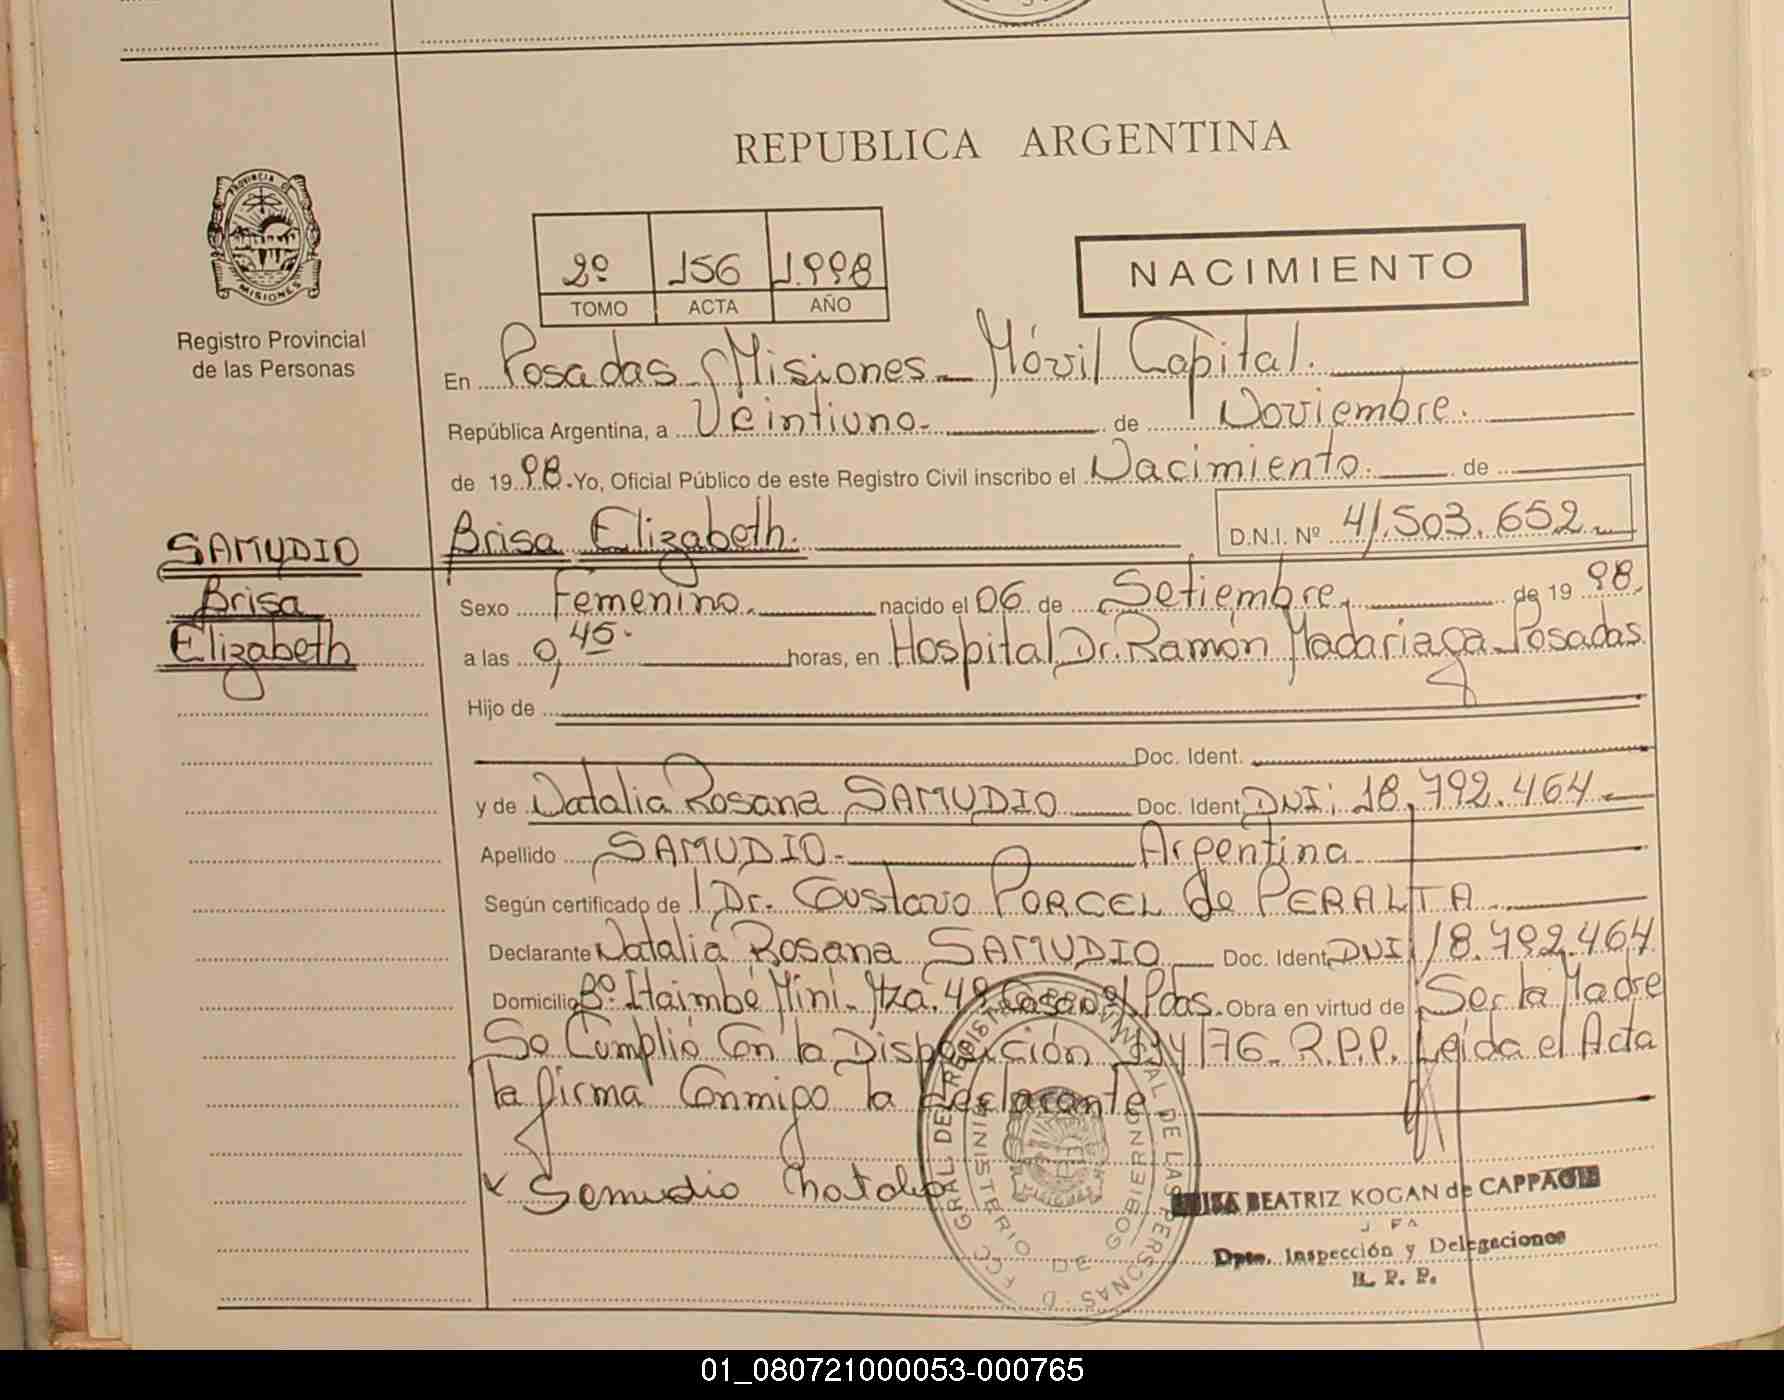 REPUBLICA ARGENTINA
PROVINCIA DE MISIONES
Registro Provincial
de las Personas
2º 156 1.998
TOMO ACTA AÑO
NACIMIENTO
En Posadas, Misiones - Móvil Capital.
República Argentina, a Veintiuno. de Noviembre.
de 19 98. Yo, Oficial Público de este Registro Civil inscribo el Nacimiento. de
SAMUDIO
Brisa
Elizabeth
Brisa Elizabeth. D.N.I. Nº 41.503.652
Sexo Femenino. nacido el 06 de Setiembre. de 19 98.
a las 9,45. horas, en Hospital Dr. Ramón Madariaga Posadas.
Hijo de
Doc. Ident.
y de Natalia Rosana SAMUDIO Doc. Ident. DNI: 18.792.464
Apellido SAMUDIO. Argentina
Según certificado de Dr. Gustavo PORCEL de PERALTA
Declarante Natalia Rosana SAMUDIO Doc. Ident. DNI 18.792.464
Domicilio Bº Itaimbé Miní - Mza. 49 Casa Pdas. Obra en virtud de Ser la Madre
Se Cumplió Con la Disposición 114/76 - R.P.P. Leída el Acta
la firma Conmigo la declarante.
Samudio Natalia
BEATRIZ KOGAN de CAPPAGLI
Dpto. Inspección y Delegaciones
R. P. P.
GRAL. DEL REGISTRO PROVINCIAL DE LAS PERSONAS
MINISTERIO DE GOBIERNO
01_080721000053-000765